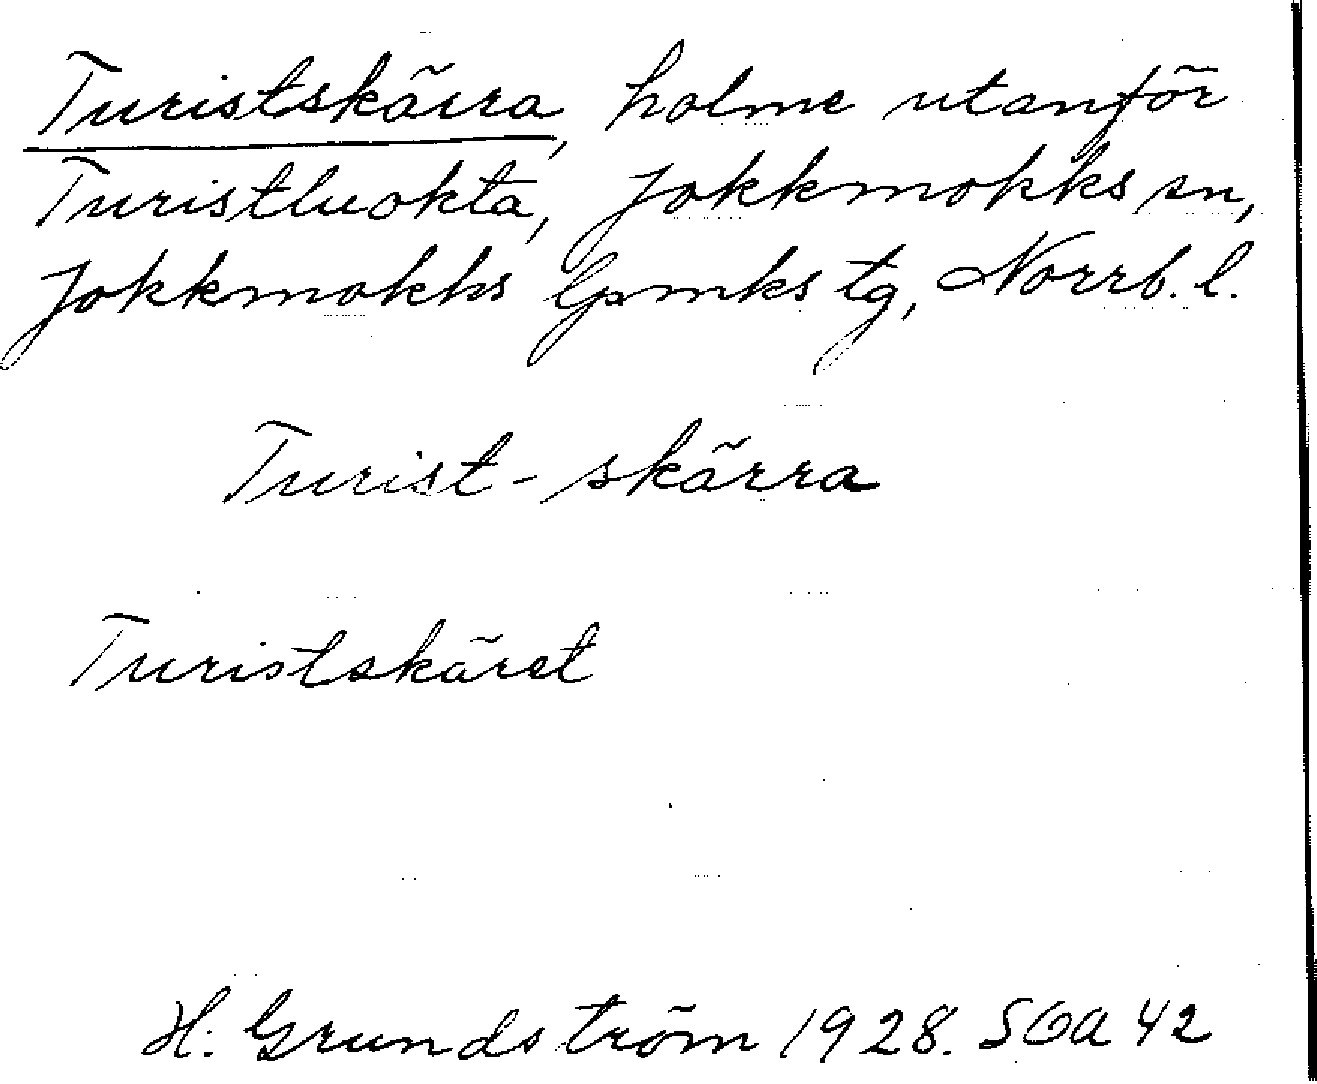 Turistskärra, holme utanför
Turistluokta, Jokkmokks sn,
Jokkmokks lpmks tg, Norrb. l.
Turist-skärra
Turistskäret
H. Grundström 1928. SOA 42